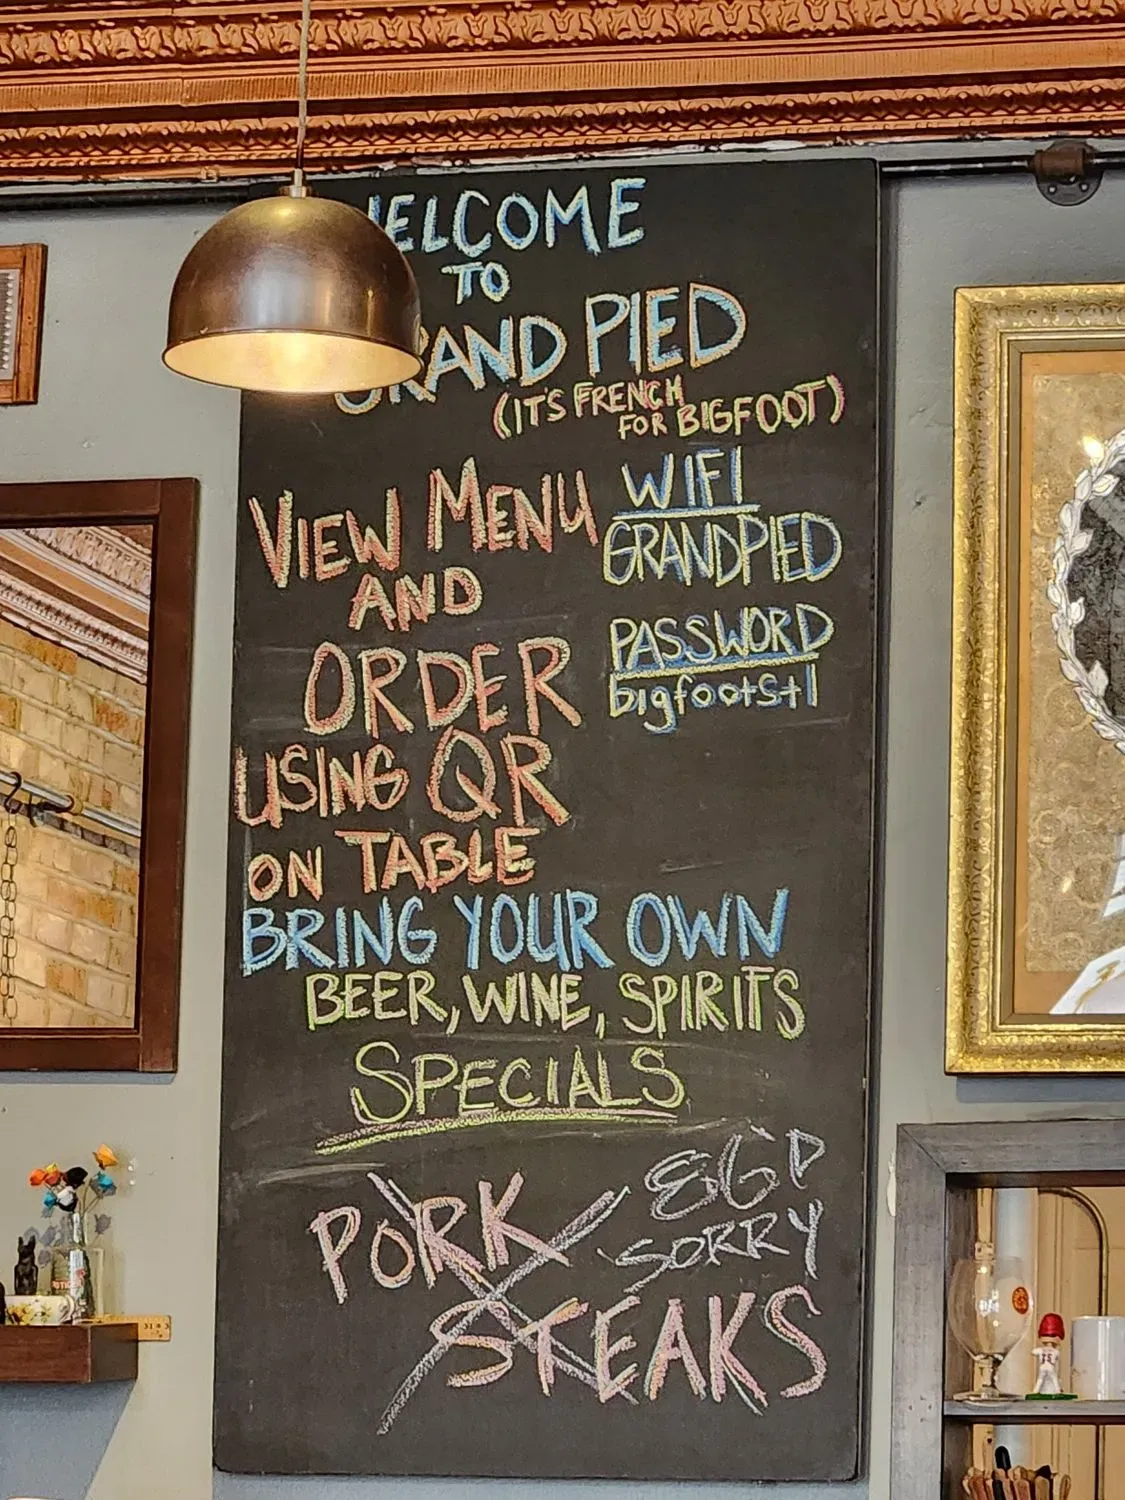 WELCOME
TO
GRAND PIED
(ITS FRENCH
FOR BIGFOOT)
VIEW MENU
AND
ORDER
USING QR
ON TABLE
WIFI
GRANDPIED
PASSWORD
bigfootstl
BRING YOUR OWN
BEER, WINE, SPIRITS
SPECIALS
PORK
STEAKS
86'D
SORRY